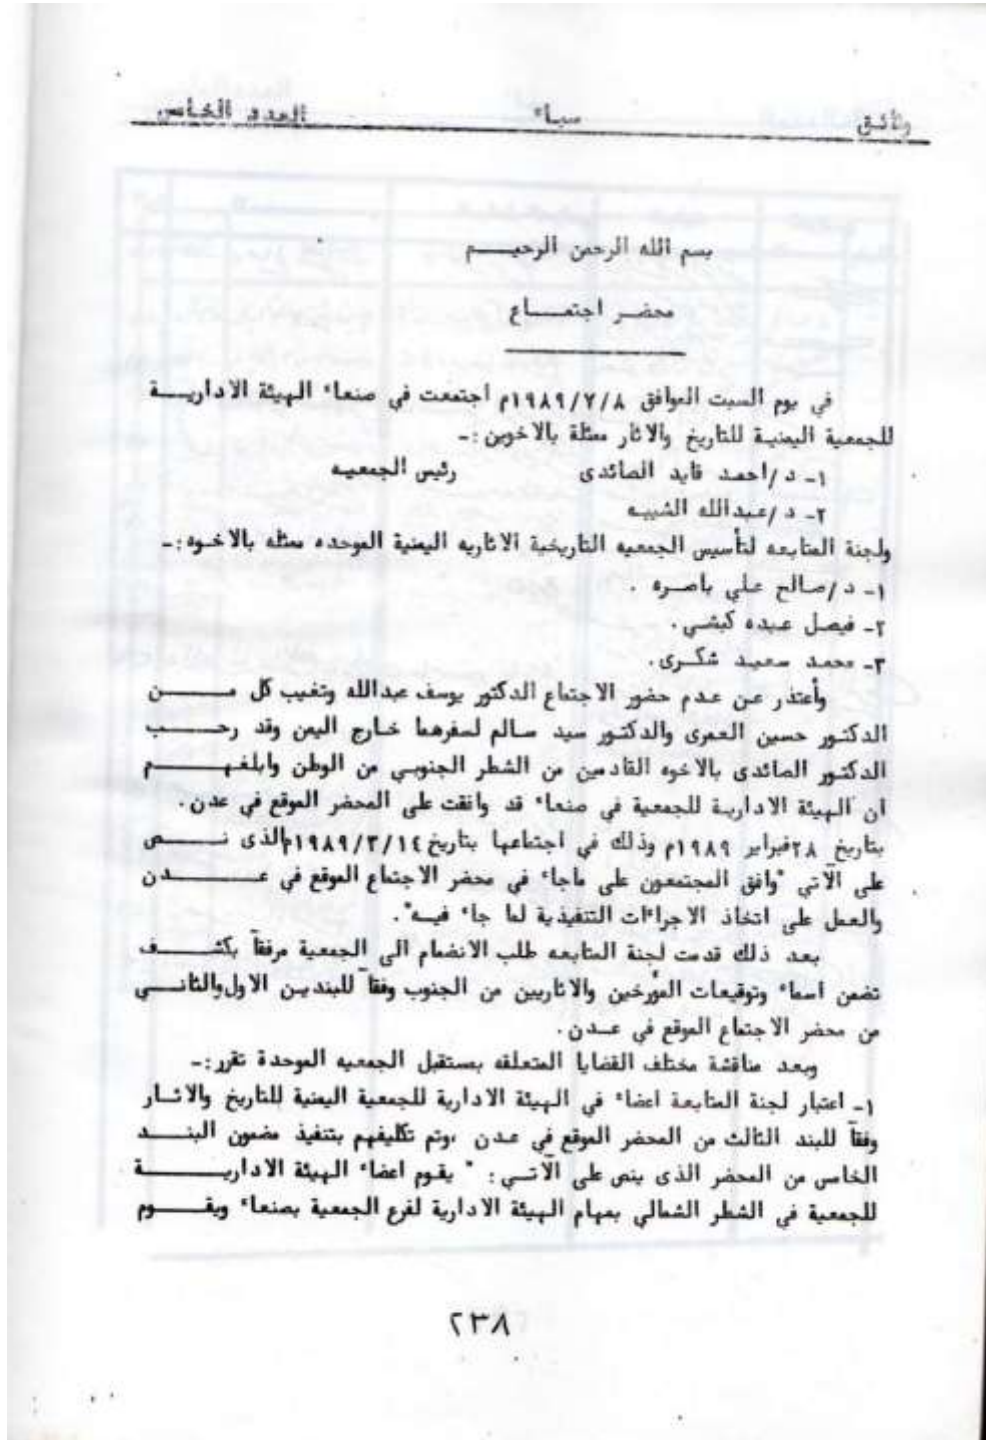 وثائق سباء العدد الخامس
بسم الله الرحمن الرحيم
محضر اجتماع
في يوم السبت الموافق ١٩٨٩/٧/٨م اجتمعت في صنعاء الهيئة الادارية
للجمعية اليمنية للتاريخ والاثار ممثلة بالاخوين:-
١- د/احمد قايد الصائدى رئيس الجمعيه
٢- د/عبدالله الشيبه
ولجنة المتابعه لتأسيس الجمعيه التاريخية الاثاريه اليمنية الموحده ممثله بالاخوه:-
١- د/صالح علي باصره .
٢- فيصل عبده كبشي.
٣- محمد سعيد شكرى.
وأعتذر عن عدم حضور الاجتماع الدكتور يوسف عبدالله وتغيب كل من
الدكتور حسين العمرى والدكتور سيد سالم لسفرهما خارج اليمن وقد رحب
الدكتور الصائدى بالاخوه القادمين من الشطر الجنوبي من الوطن وابلغهم
ان الهيئة الادارية للجمعية في صنعاء قد وافقت على المحضر الموقع في عدن.
بتاريخ ٢٨فبراير ١٩٨٩م وذلك في اجتماعها بتاريخ ١٩٨٩/٣/١٤م الذى نص
على الآتي "وافق المجتمعون على ماجاء في محضر الاجتماع الموقع في عدن
والعمل على اتخاذ الاجراءات التنفيذية لما جاء فيه".
بعد ذلك قدمت لجنة المتابعه طلب الانضمام الى الجمعية مرفقاً بكشف
تضمن اسماء وتوقيعات المؤرخين والاثاريين من الجنوب وفقاً للبندين الاول والثاني
من محضر الاجتماع الموقع في عدن.
وبعد مناقشة مختلف القضايا المتعلقه بمستقبل الجمعيه الموحدة تقرر:-
١- اعتبار لجنة المتابعة اعضاء في الهيئة الادارية للجمعية اليمنية للتاريخ والاثار
وفقاً للبند الثالث من المحضر الموقع في عدن ،وتم تكليفهم بتنفيذ مضمون البند
الخامس من المحضر الذى ينص على الآتي: " يقوم اعضاء الهيئة الادارية
للجمعية في الشطر الشمالي بمهام الهيئة الادارية لفرع الجمعية بصنعاء ويقوم
٢٣٨